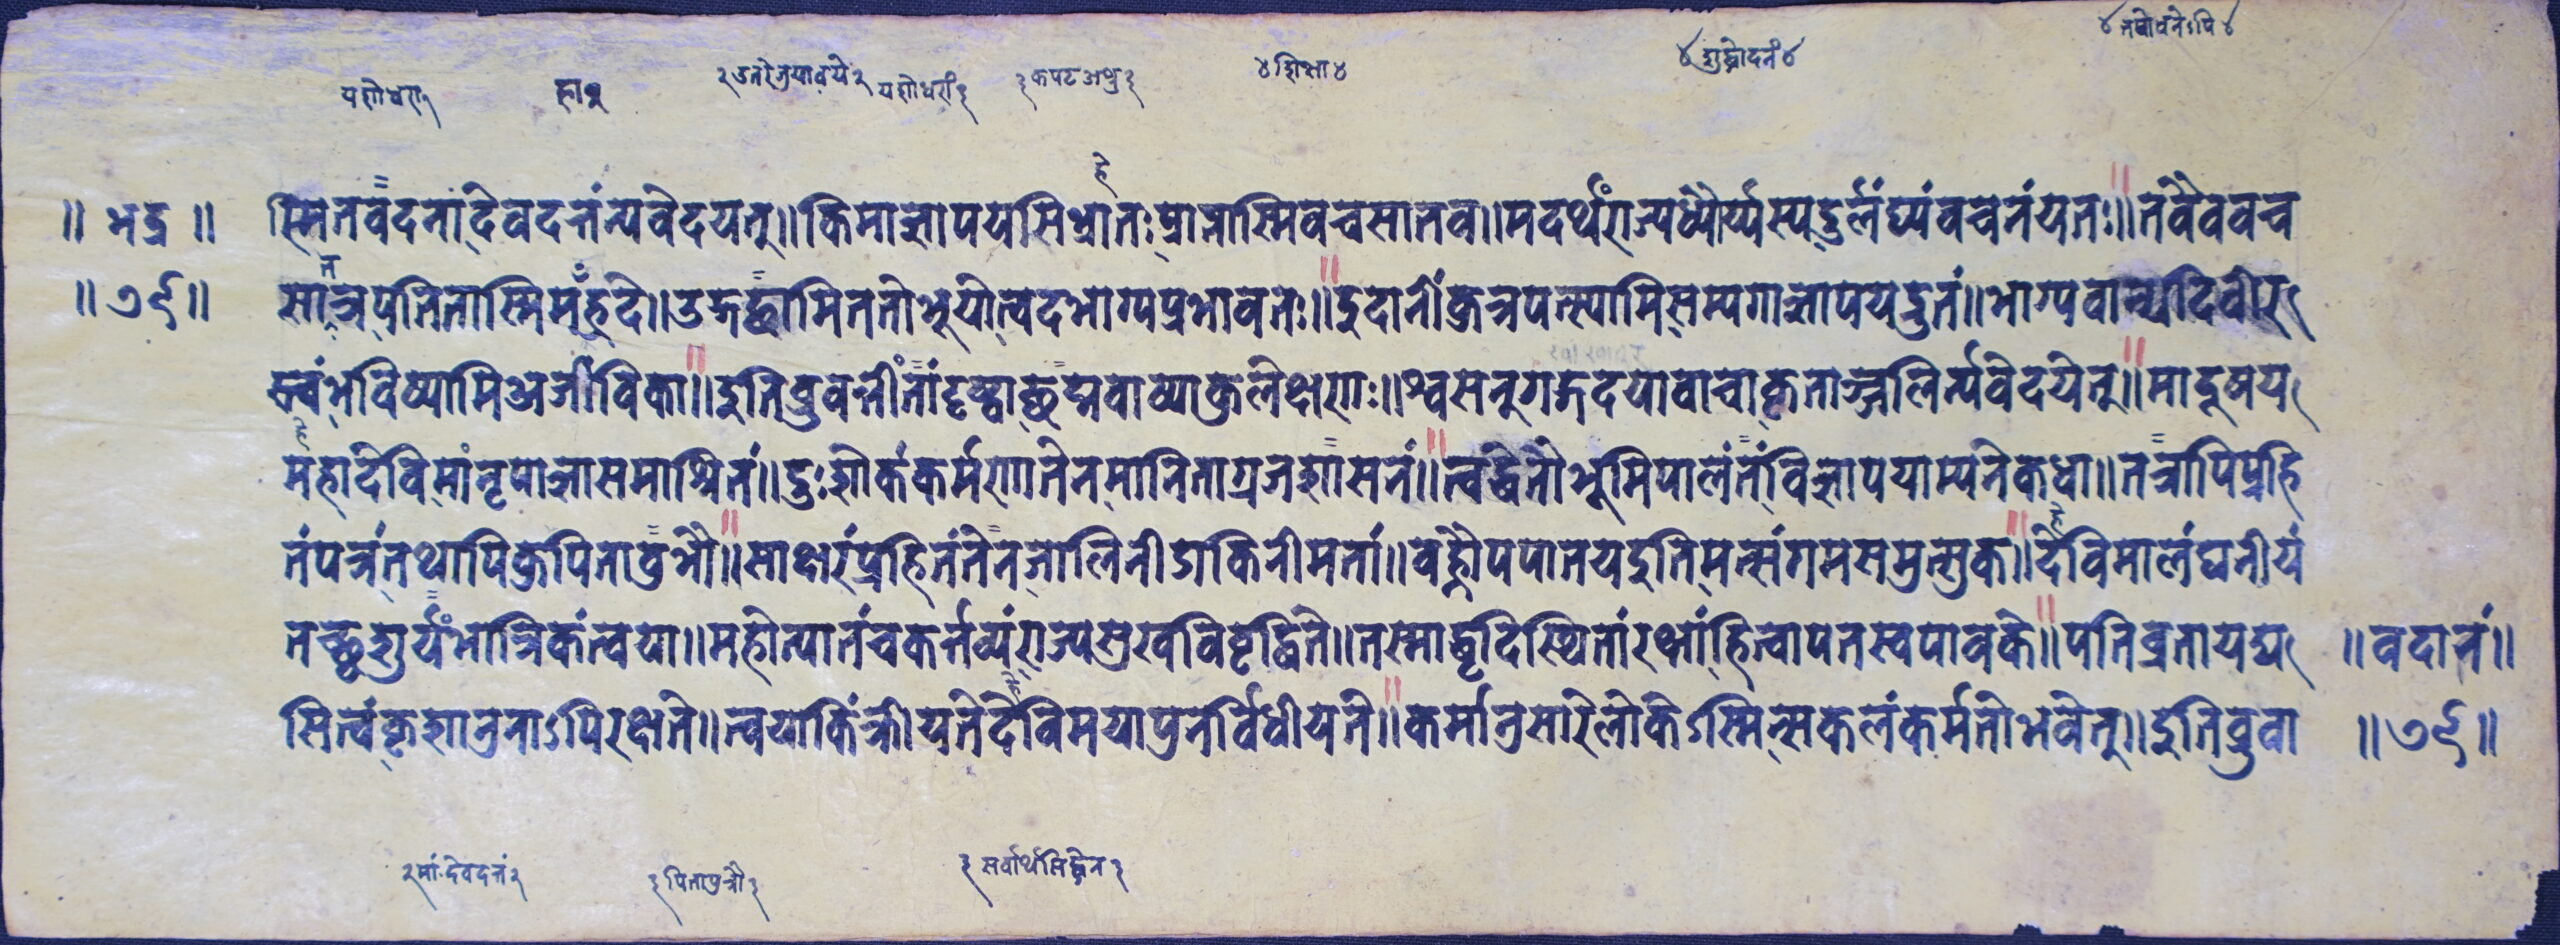 यशोधरा१
हा१
२उतोत्रुयावये२
यशोधरां३
३कपटअश्रु३
४शिक्षा४
४शुद्धोदनं४
४तपोवनेऽपि४
॥ भद्र ॥
स्मितवदनां देवदत्तं न्यवेदयत्॥ किमाज्ञापयसि भ्रातः प्राप्तास्मि वचसा तव॥ मदर्थं राज्यधौर्य्यस्य दुर्लंघ्यं वचनं यतः॥ तवैव वच
॥ ७९ ॥
सा तत्र पतितास्मि महह्रदे॥ उद्गच्छामि ततो भूयो त्वदभाग्यप्रभावतः॥ इदानीं कुत्र पत्स्यामि सम्यगाज्ञापय द्रुतं॥ भाग्यवान्यदि वीर
स्त्वं भविष्यामि अजीविका॥ इति ब्रुवन्तीं तां दृष्ट्वा छद्मवाष्पाकुलेक्षणः॥ श्वसन् गद्गदया वाचा कृताञ्जलिर्न्यवेदयेत्॥ मा दूषय
हे
महादेवि मां नृपाज्ञासमाश्रितं॥ दुःशोककर्मणा तेन मानिताग्रजशासनं॥ त्वद्धेतो भूमिपालं तं विज्ञापयाम्यनेकधा॥ तत्रापि प्रहि
तं पत्रं तथापि कुपितावुभौ॥ साक्षरं प्रहितं तेन जालिनी डाकिनी मता॥ वह्नौ पपातयदिति मत्संगमसमुत्सुक॥ देवि मा लंघनीयं
तच्छ्वशुर्यं भात्रिकं त्वया॥ महोत्पातं च कर्तव्यं राज्यसुखविवृद्धिते॥ तस्माद्धृदि स्थितां रक्षां हित्वा पतस्व पावके॥ पतिव्रता यद्य
॥ वदानं ॥
सि त्वं कृशानुनाऽपि रक्षते॥ त्वया किं क्रीयते देवि मया पुनर्विधीयते॥ कर्मानुसारे लोकेऽस्मिन् सकलं कर्मतो भवेत्॥ इति ब्रुवा
॥ ७९ ॥
२मां देवदत्तं२
३पितापुत्रौ३
३सर्वार्थसिद्धेन३